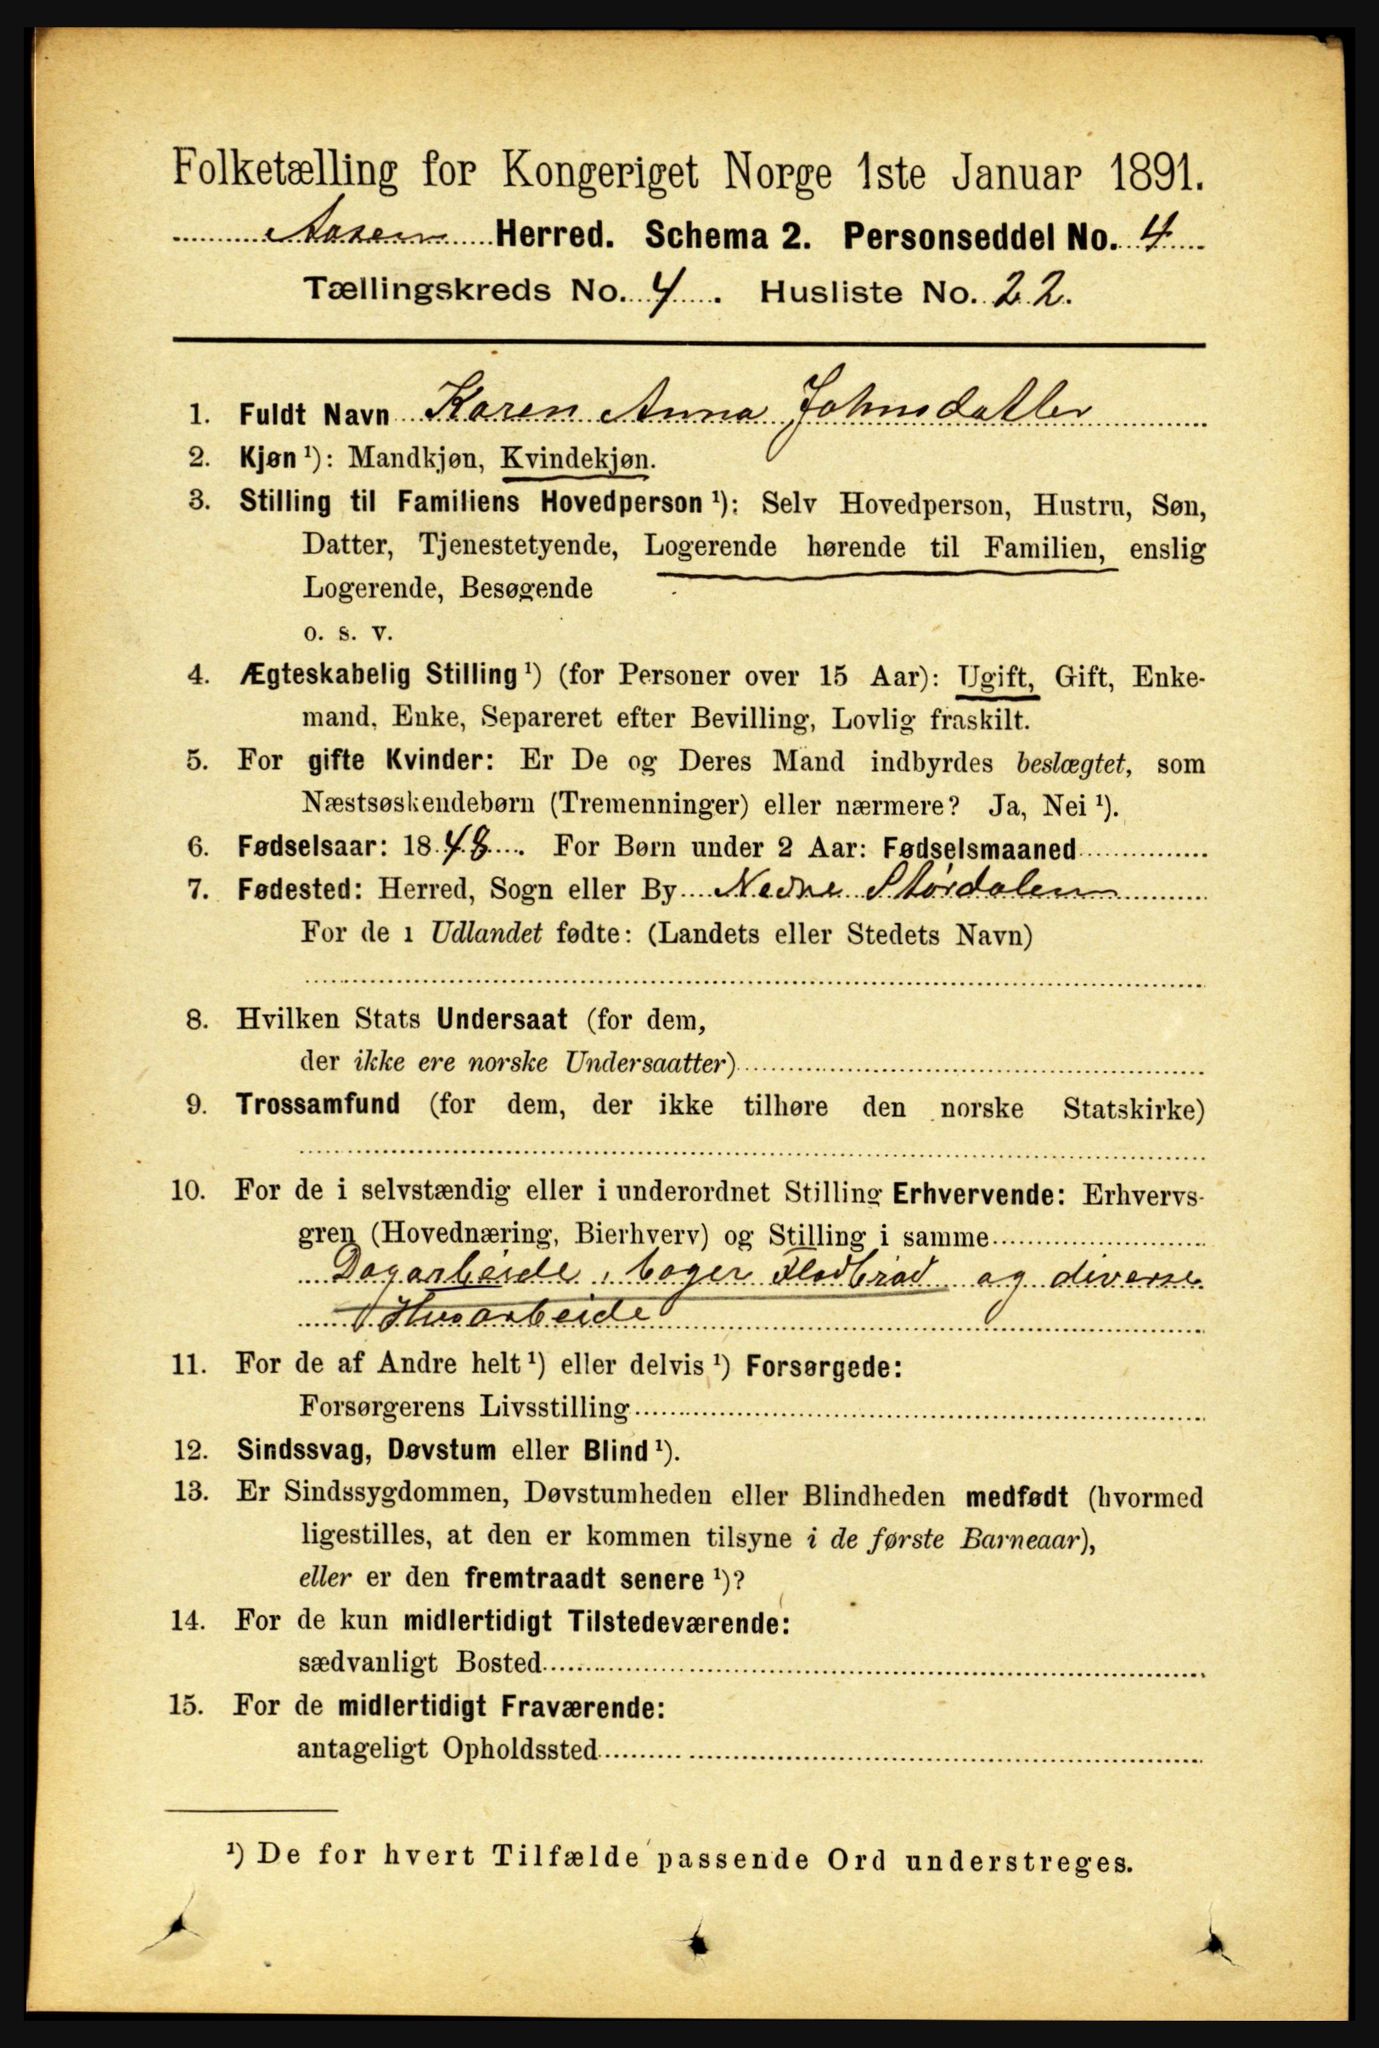 Folketælling for Kongeriget Norge 1ste Januar 1891.
Aasen Herred. Schema 2. Personseddel No. 4
Tællingskreds No. 4. Husliste No. 22.
1. Fuldt Navn Karen Anna Johnsdatter
2. Kjøn ¹): Mandkjøn, Kvindekjøn.
3. Stilling til Familiens Hovedperson ¹): Selv Hovedperson, Hustru, Søn,
Datter, Tjenestetyende, Logerende hørende til Familien, enslig
Logerende, Besøgende
o. s. v.
4. Ægteskabelig Stilling ¹) (for Personer over 15 Aar): Ugift, Gift, Enke-
mand, Enke, Separeret efter Bevilling, Lovlig fraskilt.
5. For gifte Kvinder: Er De og Deres Mand indbyrdes beslægtet, som
Næstsøskendebørn (Tremenninger) eller nærmere? Ja, Nei ¹).
6. Fødselsaar: 1848. For Børn under 2 Aar: Fødselsmaaned
7. Fødested: Herred, Sogn eller By Nedre Størdalen
For de i Udlandet fødte: (Landets eller Stedets Navn)
8. Hvilken Stats Undersaat (for dem,
der ikke ere norske Undersaatter)
9. Trossamfund (for dem, der ikke tilhøre den norske Statskirke)
10. For de i selvstændig eller i underordnet Stilling Erhvervende: Erhvervs-
gren (Hovednæring, Bierhverv) og Stilling i samme
Dagarbeide, bager Fladbrød og diverse
Husarbeide
11. For de af Andre helt ¹) eller delvis ¹) Forsørgede:
Forsørgerens Livsstilling
12. Sindssvag, Døvstum eller Blind ¹).
13. Er Sindssygdommen, Døvstumheden eller Blindheden medfødt (hvormed
ligestilles, at den er kommen tilsyne i de første Barneaar),
eller er den fremtraadt senere ¹)?
14. For de kun midlertidigt Tilstedeværende:
sædvanligt Bosted
15. For de midlertidigt Fraværende:
antageligt Opholdssted
¹) De for hvert Tilfælde passende Ord understreges.